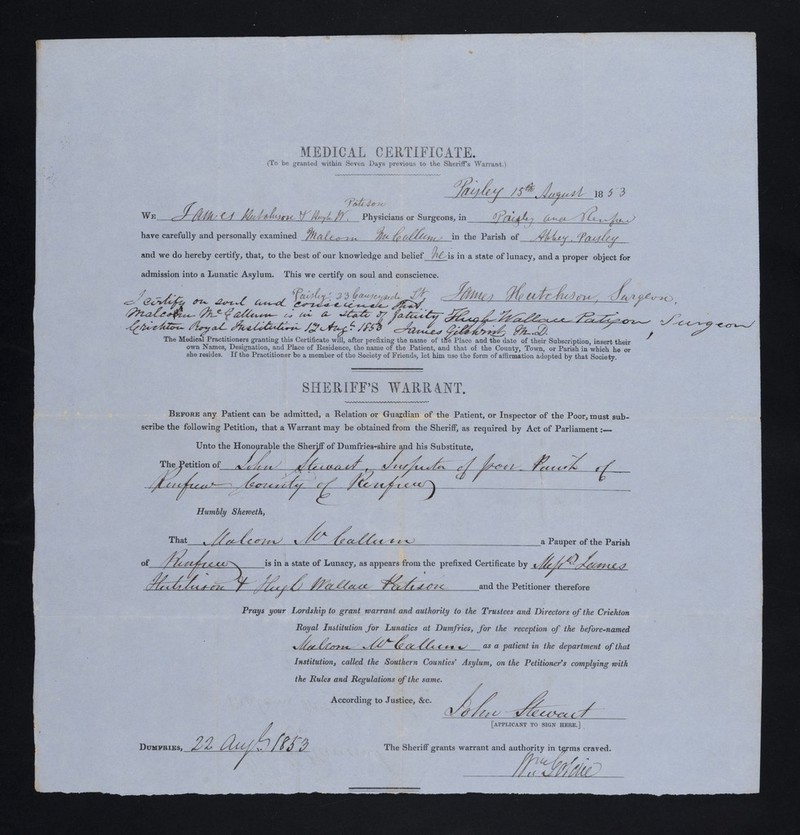 MEDICAL CERTIFICATE.
(To be granted within Seven Days previous to the Sheriff's Warrant.)
Paisley 15th August 1853
Patison
WE James Hutchison & Hugh W. Physicians or Surgeons, in Paisley and Renfrew
have carefully and personally examined Malcom McCallum in the Parish of Abbey Paisley
and we do hereby certify, that, to the best of our knowledge and belief he is in a state of lunacy, and a proper object for
admission into a Lunatic Asylum. This we certify on soul and conscience.
Paisley: 33 Causeyside St James Hutchison, Surgeon.
I certify on soul and conscience that
Malcolm McCallum is in a state of fatuity Hugh Wallace Patison Surgeon
Crichton Royal Institution Augt. 1853 James Gilchrist, M.D.
The Medical Practitioners granting this Certificate will, after prefixing the name of the Place and the date of their Subscription, insert their
own Names, Designation, and Place of Residence, the name of the Patient, and that of the County, Town, or Parish in which he or
she resides. If the Practitioner be a member of the Society of Friends, let him use the form of affirmation adopted by that Society.
SHERIFF'S WARRANT.
BEFORE any Patient can be admitted, a Relation or Guardian of the Patient, or Inspector of the Poor, must sub-
scribe the following Petition, that a Warrant may be obtained from the Sheriff, as required by Act of Parliament:—
Unto the Honourable the Sheriff of Dumfries-shire and his Substitute,
The Petition of John Stewart, Inspector of poor Parish of
Renfrew County of Renfrew
Humbly Sheweth,
That Malcom McCallum a Pauper of the Parish
of Renfrew is in a state of Lunacy, as appears from the prefixed Certificate by Messrs James
Hutchison & Hugh Wallace Patison and the Petitioner therefore
Prays your Lordship to grant warrant and authority to the Trustees and Directors of the Crichton
Royal Institution for Lunatics at Dumfries, for the reception of the before-named
Malcom McCallum as a patient in the department of that
Institution, called the Southern Counties' Asylum, on the Petitioner's complying with
the Rules and Regulations of the same.
According to Justice, &c.
John Stewart
[APPLICANT TO SIGN HERE.]
DUMFRIES, 22 Augt 1853 The Sheriff grants warrant and authority in terms craved.
Wm Goldie